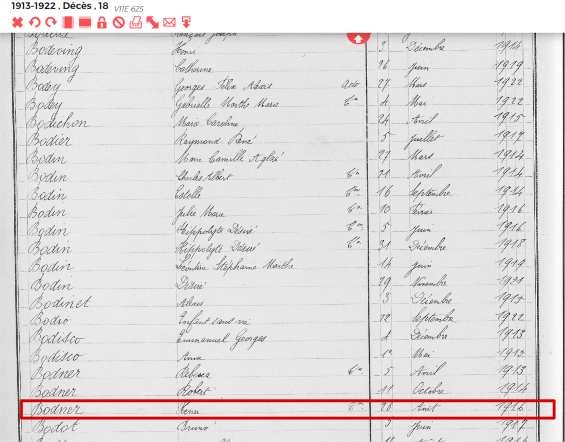 1913-1922 , Décès , 18 V11E 625
Bodeving Henri 3 Décembre 1914
Bodeving Catherine 26 Juin 1919
Bodey Georges Félix Alexis Acte 27 Mars 1922
Bodey Gabrielle Marthe Cn 4 Mai 1922
Bodichon Marie Caroline 24 Avril 1915
Bodier Raymond René 5 Juillet 1917
Bodin Mme Camille Aglaé 27 Mars 1914
Bodin Charles Albert Cn 21 Avril 1914
Bodin Estelle Cn 16 Septembre 1914
Bodin Julie Marie Cn 10 Février 1916
Bodin Hippolyte Désiré Cn 5 Juin 1916
Bodin Hippolyte Désiré Cn 31 Décembre 1918
Bodin Stéphanie Marthe 14 Juin 1919
Bodin Désiré 29 Novembre 1921
Bodinet Alexis 3 Décembre 1914
Bodro Enfant sans vie 22 Septembre 1922
Bodisco Emmanuel Georges 4 Décembre 1913
Bodisco Anna Mai 1913
Bodner Rebecca Cn 5 Avril 1913
Bodner Robert 11 Octobre 1914
Bodner Cn 20 Août 1916
Bodot Bruno 3 Juin 1917